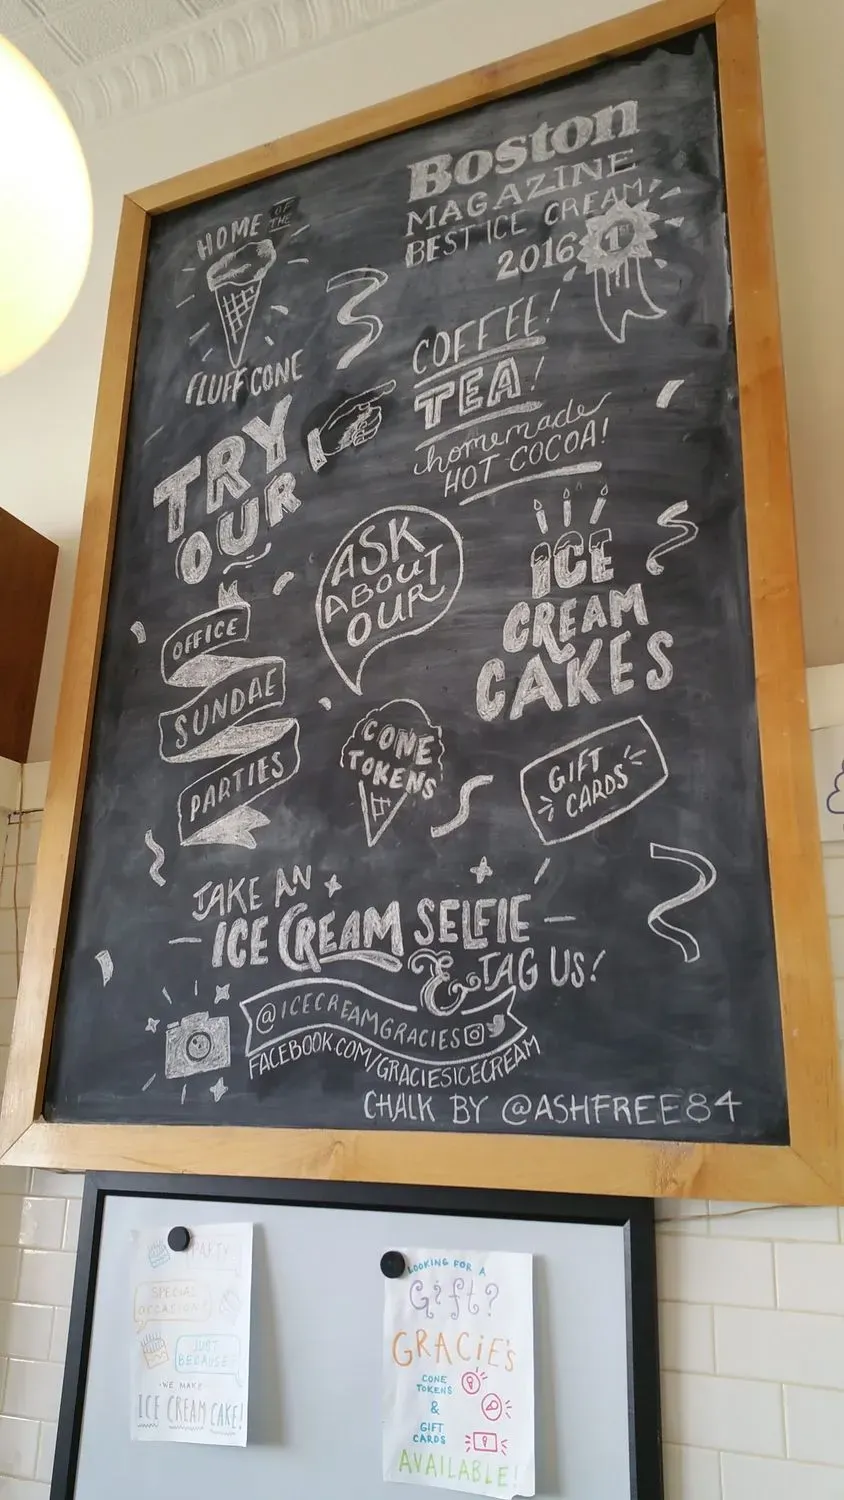 Boston
MAGAZINE
BEST ICE CREAM!
2016
1st
HOME OF THE
FLUFF CONE
TRY
OUR
COFFEE!
TEA!
homemade
HOT COCOA!
ASK
ABOUT
OUR
ICE
CREAM
CAKES
OFFICE
SUNDAE
PARTIES
CONE
TOKENS
GIFT
CARDS
TAKE AN
ICE CREAM SELFIE
& TAG US!
@ICECREAMGRACIES
FACEBOOK.COM/GRACIESICECREAM
CHALK BY @ASHFREE84
PARTY
SPECIAL
OCCASION?
JUST
BECAUSE?
WE MAKE
ICE CREAM CAKE!
LOOKING FOR A
Gift?
GRACIE'S
CONE
TOKENS
&
GIFT
CARDS
AVAILABLE!